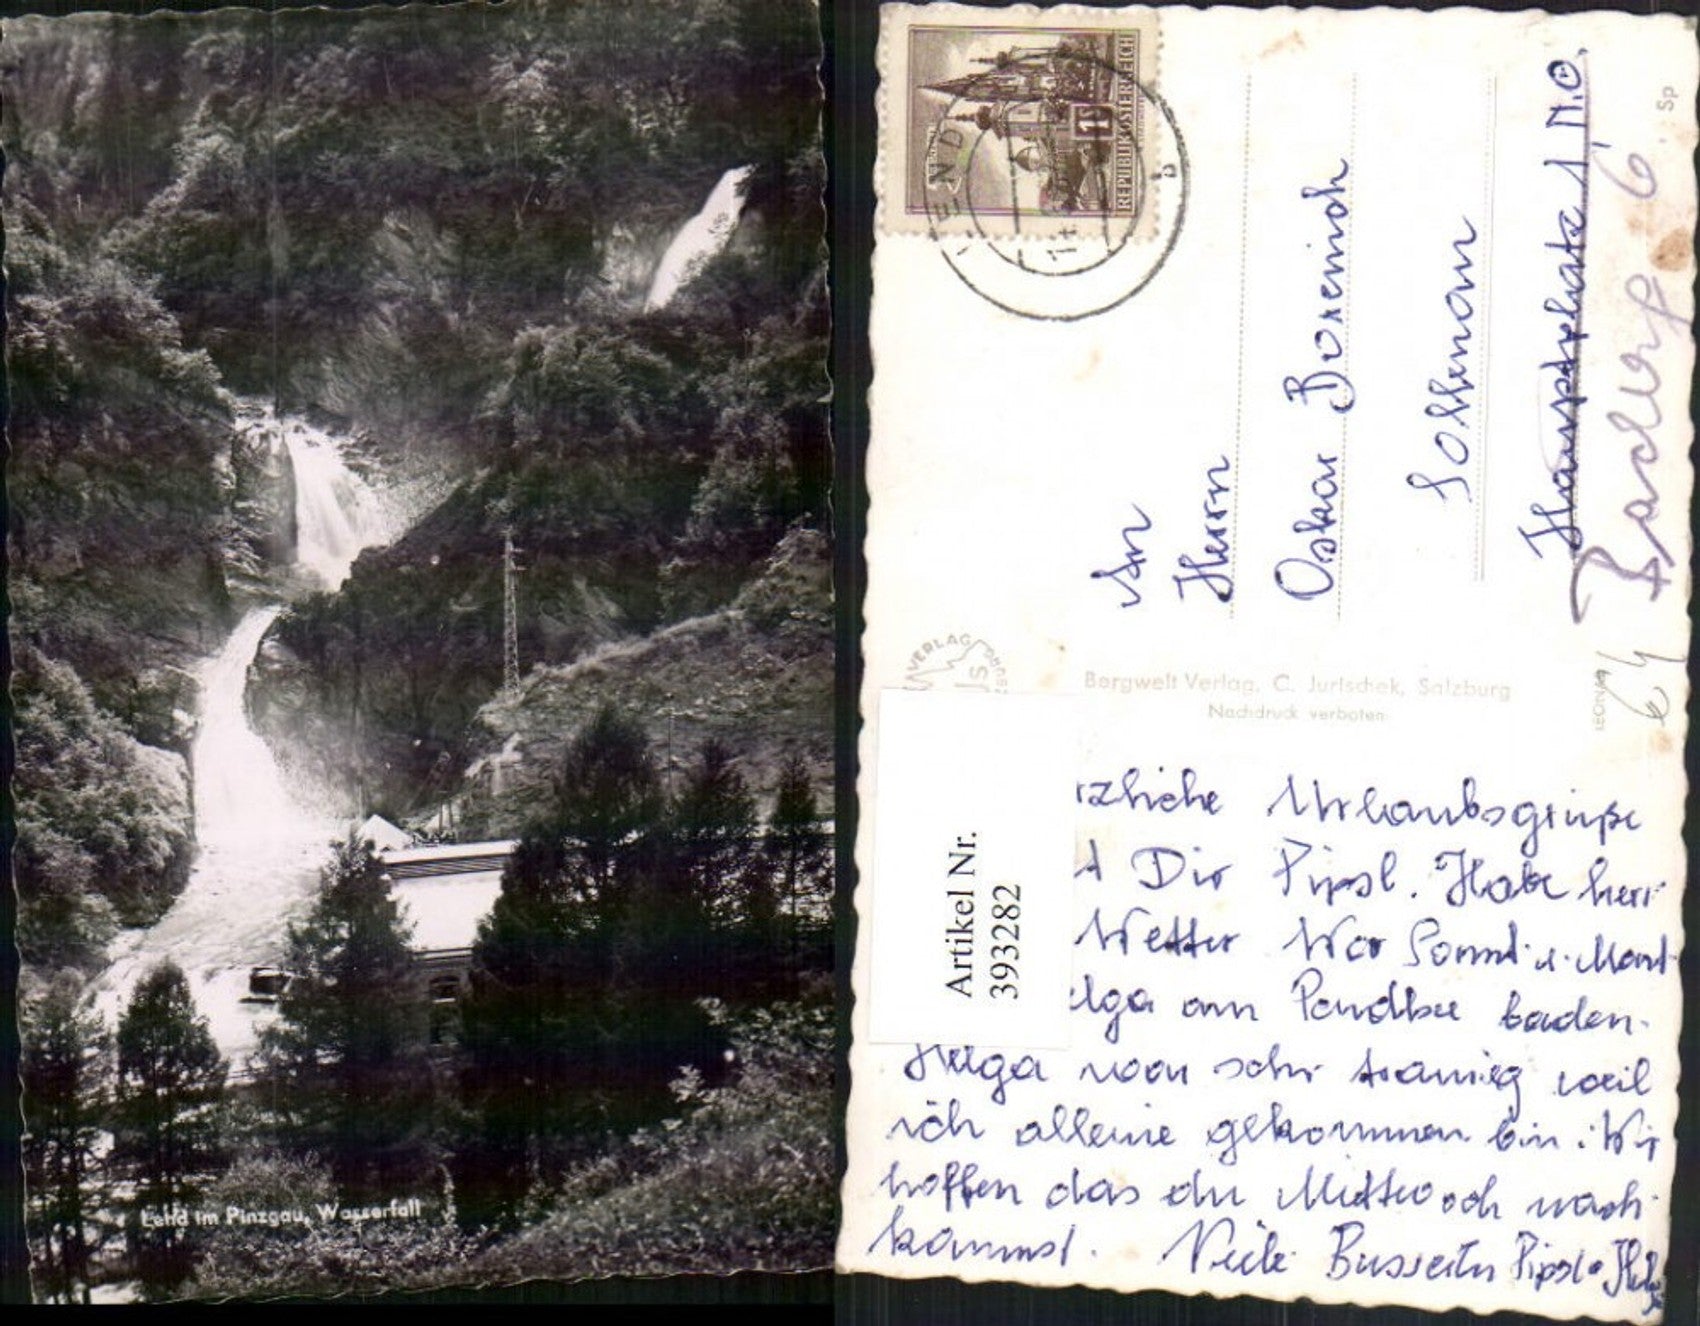 Lend im Pinzgau, Wasserfall
REPUBLIK ÖSTERREICH
1
LEND
b
An
Herrn
Oskar
Sollenau
Hauptplatz 1, N.Ö.
6
Sp
VERLAG
Bergwelt Verlag, C. Jurischek, Salzburg
Nachdruck verboten
LEONAR
64
Artikel Nr.
393282
rzliche Urlaubsgrüße
Dir Pipsl. Habe herr
Wetter War Sonnt u. Mont
elga am baden.
Helga war sehr traurig weil
ich alleine gekommen bin. Wir
hoffen das du Mittwoch nach
kommst. Viele Busserln Pipsl